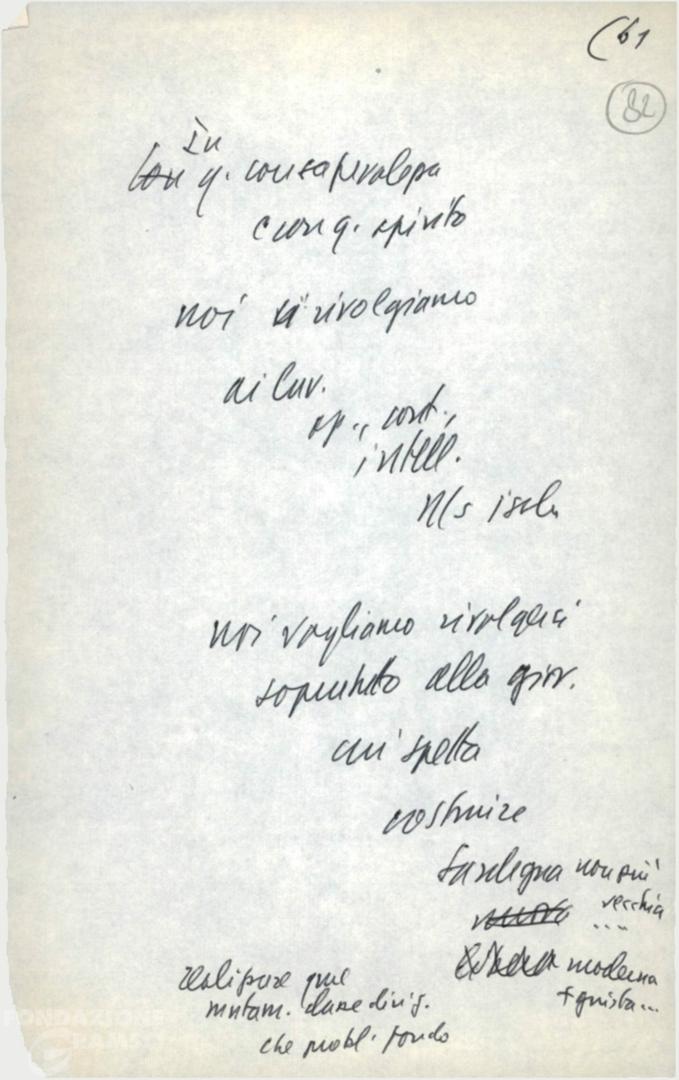 (61
82
In
Con q. consapevolezza
e con q. spirito
noi ci rivolgiamo
ai lav.
op., cont.,
intell.
n/s isola
noi vogliamo rivolgerci
soprattutto alla giov.
cui spetta
costruire
Sardegna non più
nuova vecchia
....
moderna
+ giusta...
realizzare quel
mutam. classe dirig.
che probl. fondo
FONDAZIONE